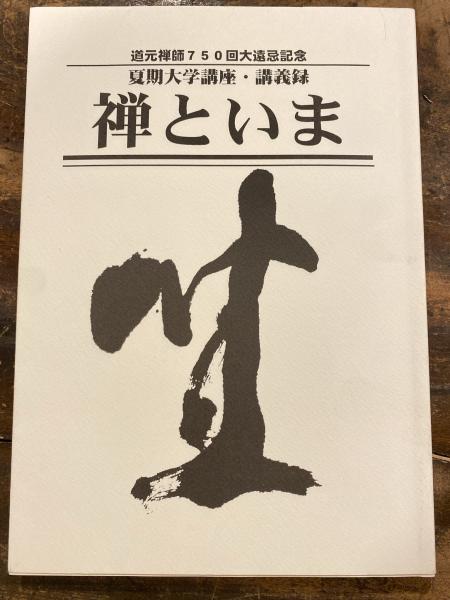 道元禅師750回大遠忌記念
夏期大学講座・講義録
禅といま